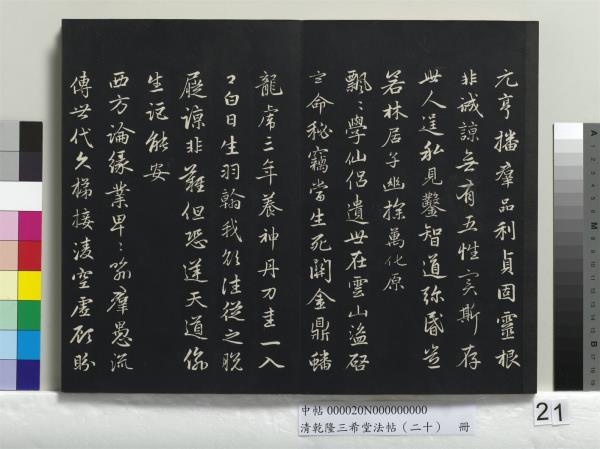 元亨播羣品利貞固靈根
非誠諒無有五性實斯存
世人逞私見鑿智道弥昏豈
若林居子幽探萬化原
飄〻學仙侶遺世在雲山盜啓
命秘竊當生死關金鼎蟠
龍虎三年養神丹刀圭一入
口白日生羽翰我欲往從之脫
屣諒非難但恐逆天道偷
生詎能安
西方論緣業卑〻喻羣愚流
傳世代久梯接凌空虛顧盼
中帖 000020N000000000
清乾隆三希堂法帖(二十) 冊
21